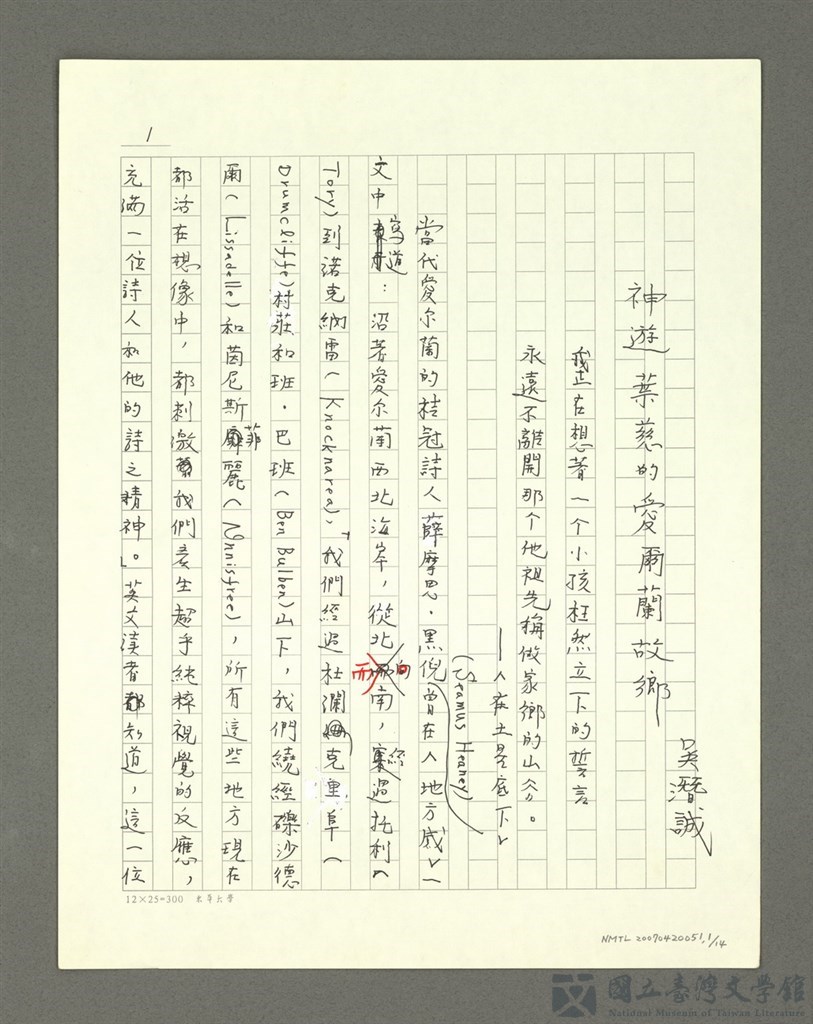 1
神遊葉慈的愛爾蘭故鄉
吳潛誠
我正在想著一个小孩枉然立下的誓言
永遠不離開那个他祖先稱做家鄉的山谷。
──〈在土星底下〉
當代愛尔蘭的桂冠詩人薛摩思·黑倪(Seamus Heaney)曾在〈地方感〉一
文中寫道：沿著愛尔蘭西北海岸，從北而南，經過托利（
Tory)到諾克納雷（Knocknarea)，「我們經過杜瀾克里阜（
Drumcliffe)村莊和班·巴班（Ben Bulben)山下，我們繞經礫沙德
爾（Lissadelle)和茵尼斯菲麗（Innisfree)，所有這些地方現在
都活在想像中，都刺激我們產生超乎純粹視覺的反應，
充滿一位詩人和他的詩之精神」。英文讀者都知道，這一位
12×25=300 東華大學
NMTL 20070420051, 1/14
國立臺灣文學館
National Museum of Taiwan Literature